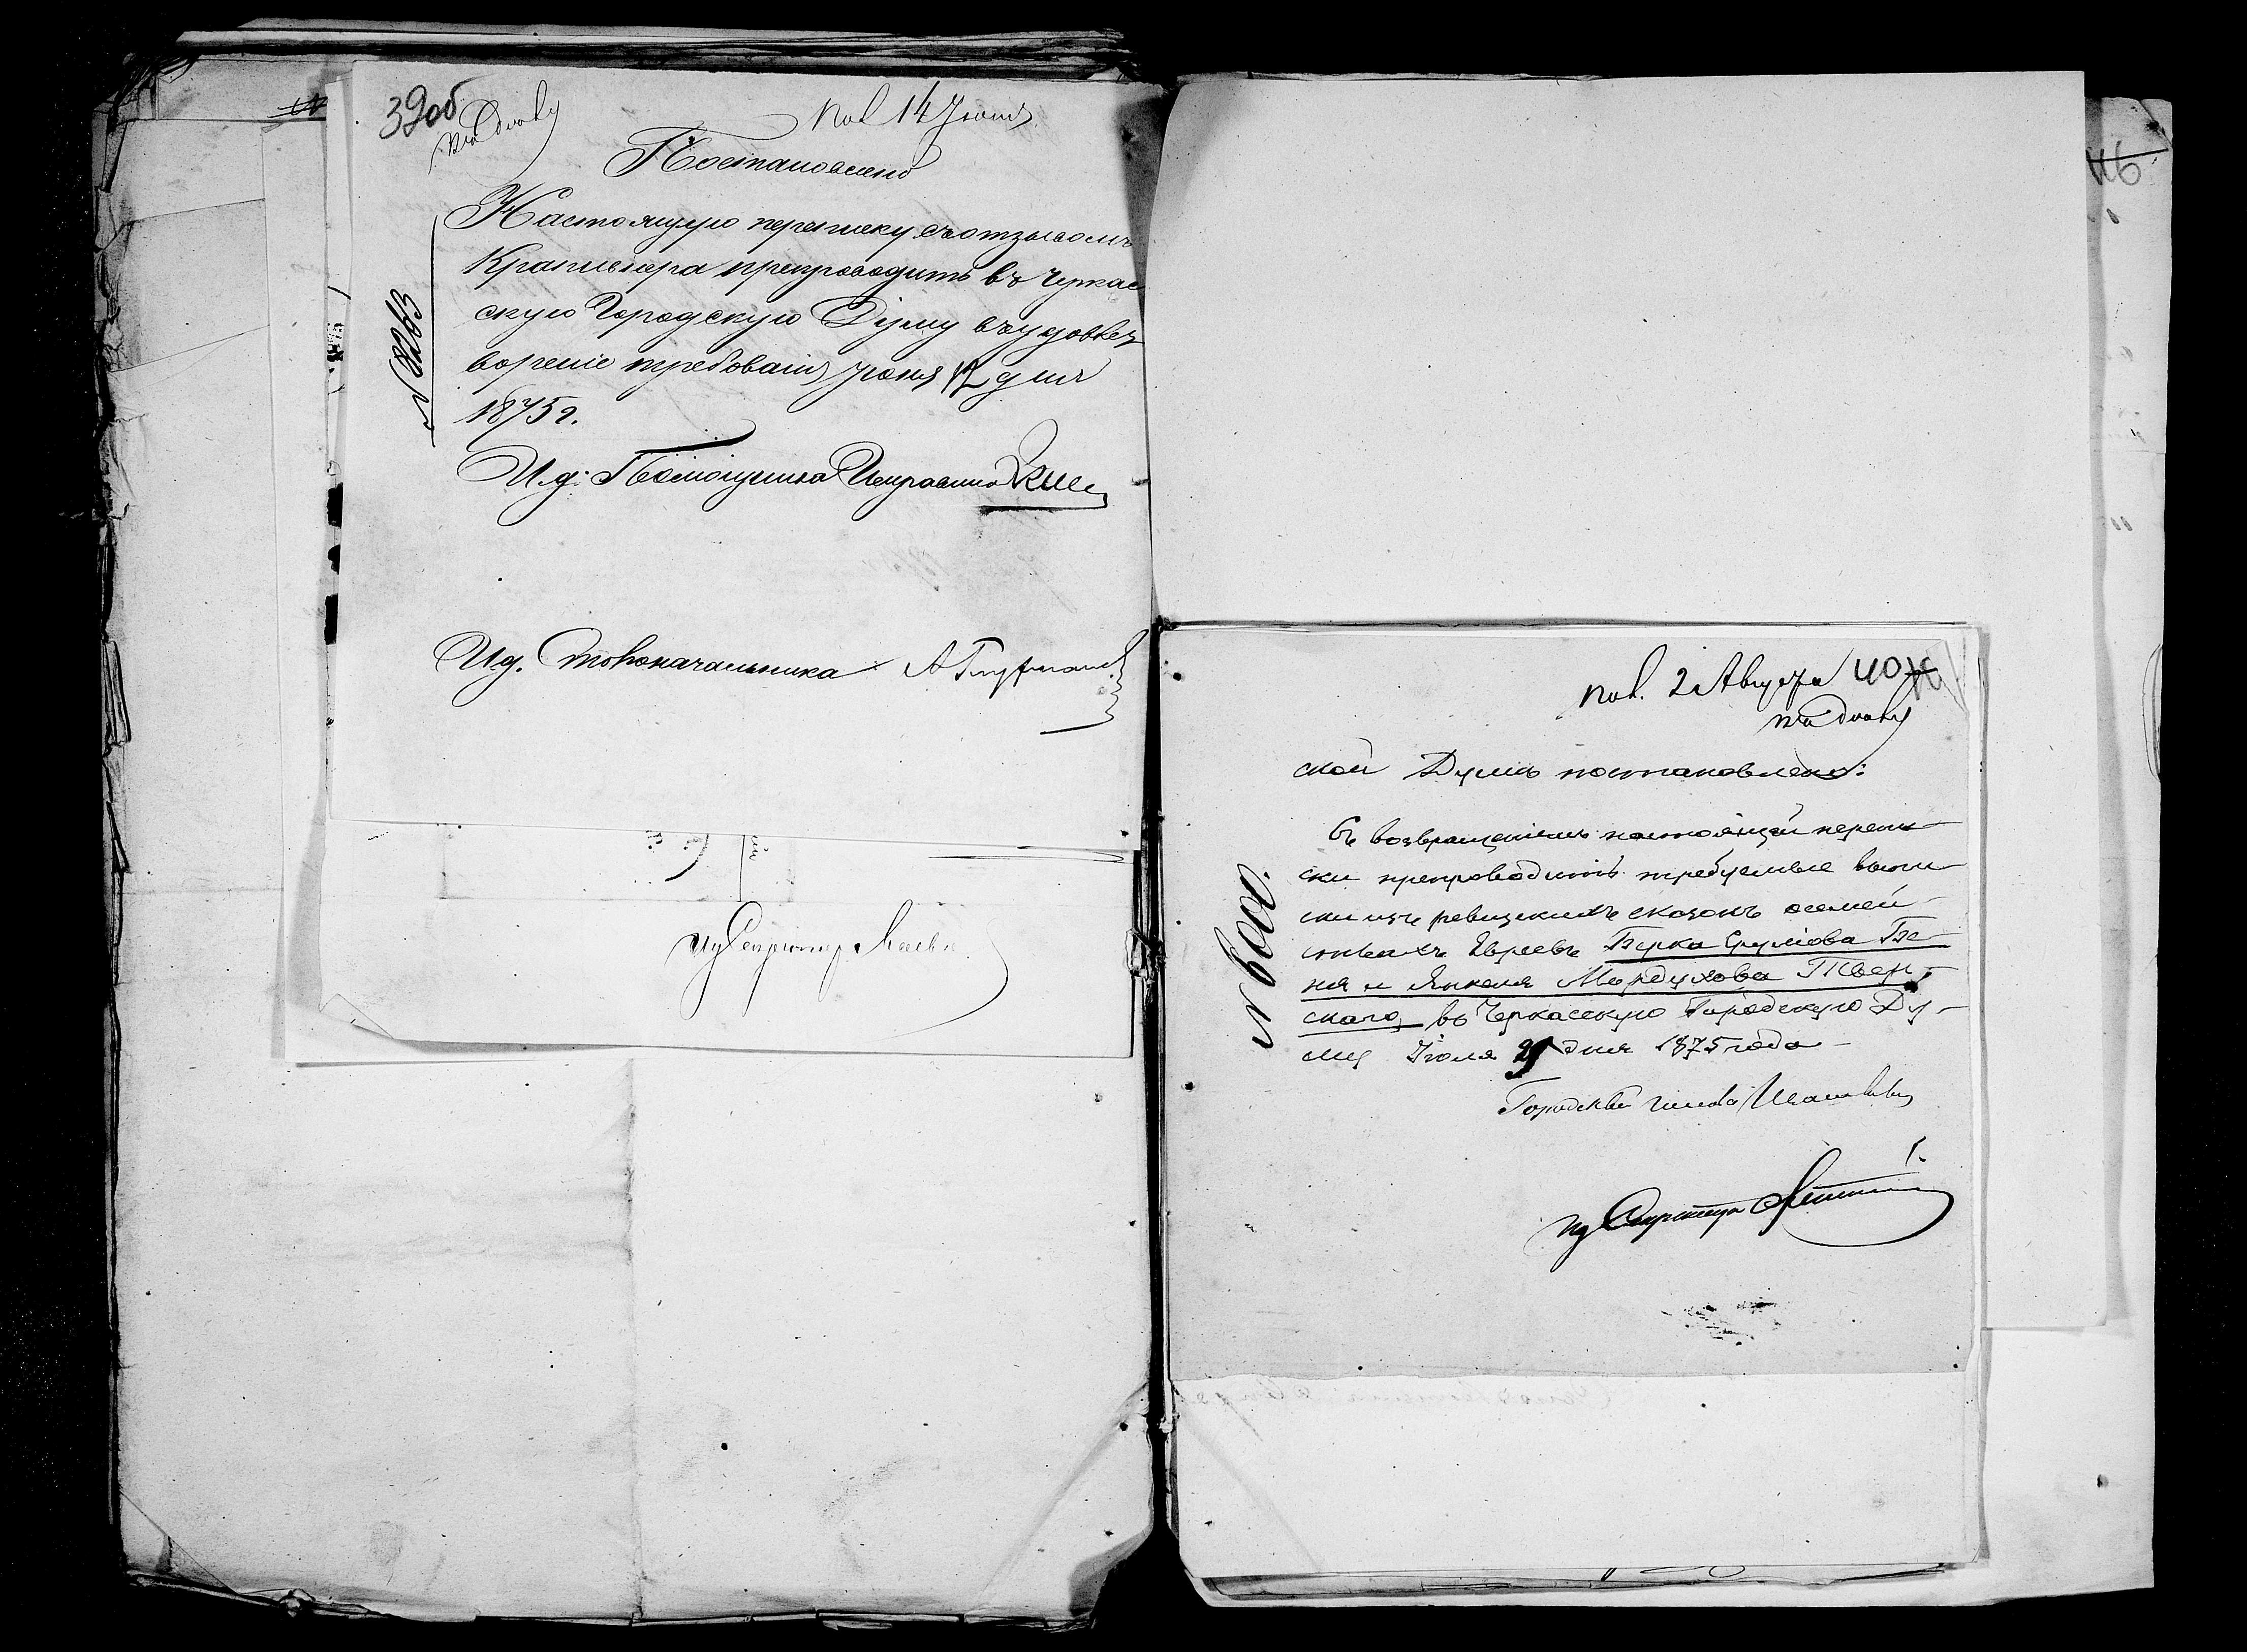 39об
Пол 14 Іюня
Къ дѣлу
Постановлено
Настоящую переписку съ отзывомъ
Крапивнера препроводить въ Черкас
скую Городскую Думу въ удовлет
вореніе требованія Іюня 12 дня
1875 г.
№ 8263
И.д. Помощника Исправника
И.д. Столоначальника
Ид Секретаря
Пол. 2 Августа 40
Къ дѣлу
ской Думы постановлено:
Съ возвращеніемъ настоящей перепи
ски препроводить требуемые выпи
ски изъ ревизскихъ сказокъ о семей
ствахъ Евреевъ Берка Сруліова Бе
ня и Янкеля Мордухова Твер
ского, въ Черкасскую Городскую Ду
му Іюля 29 дня 1875 года
Городской Голова
ид Секретаря
46